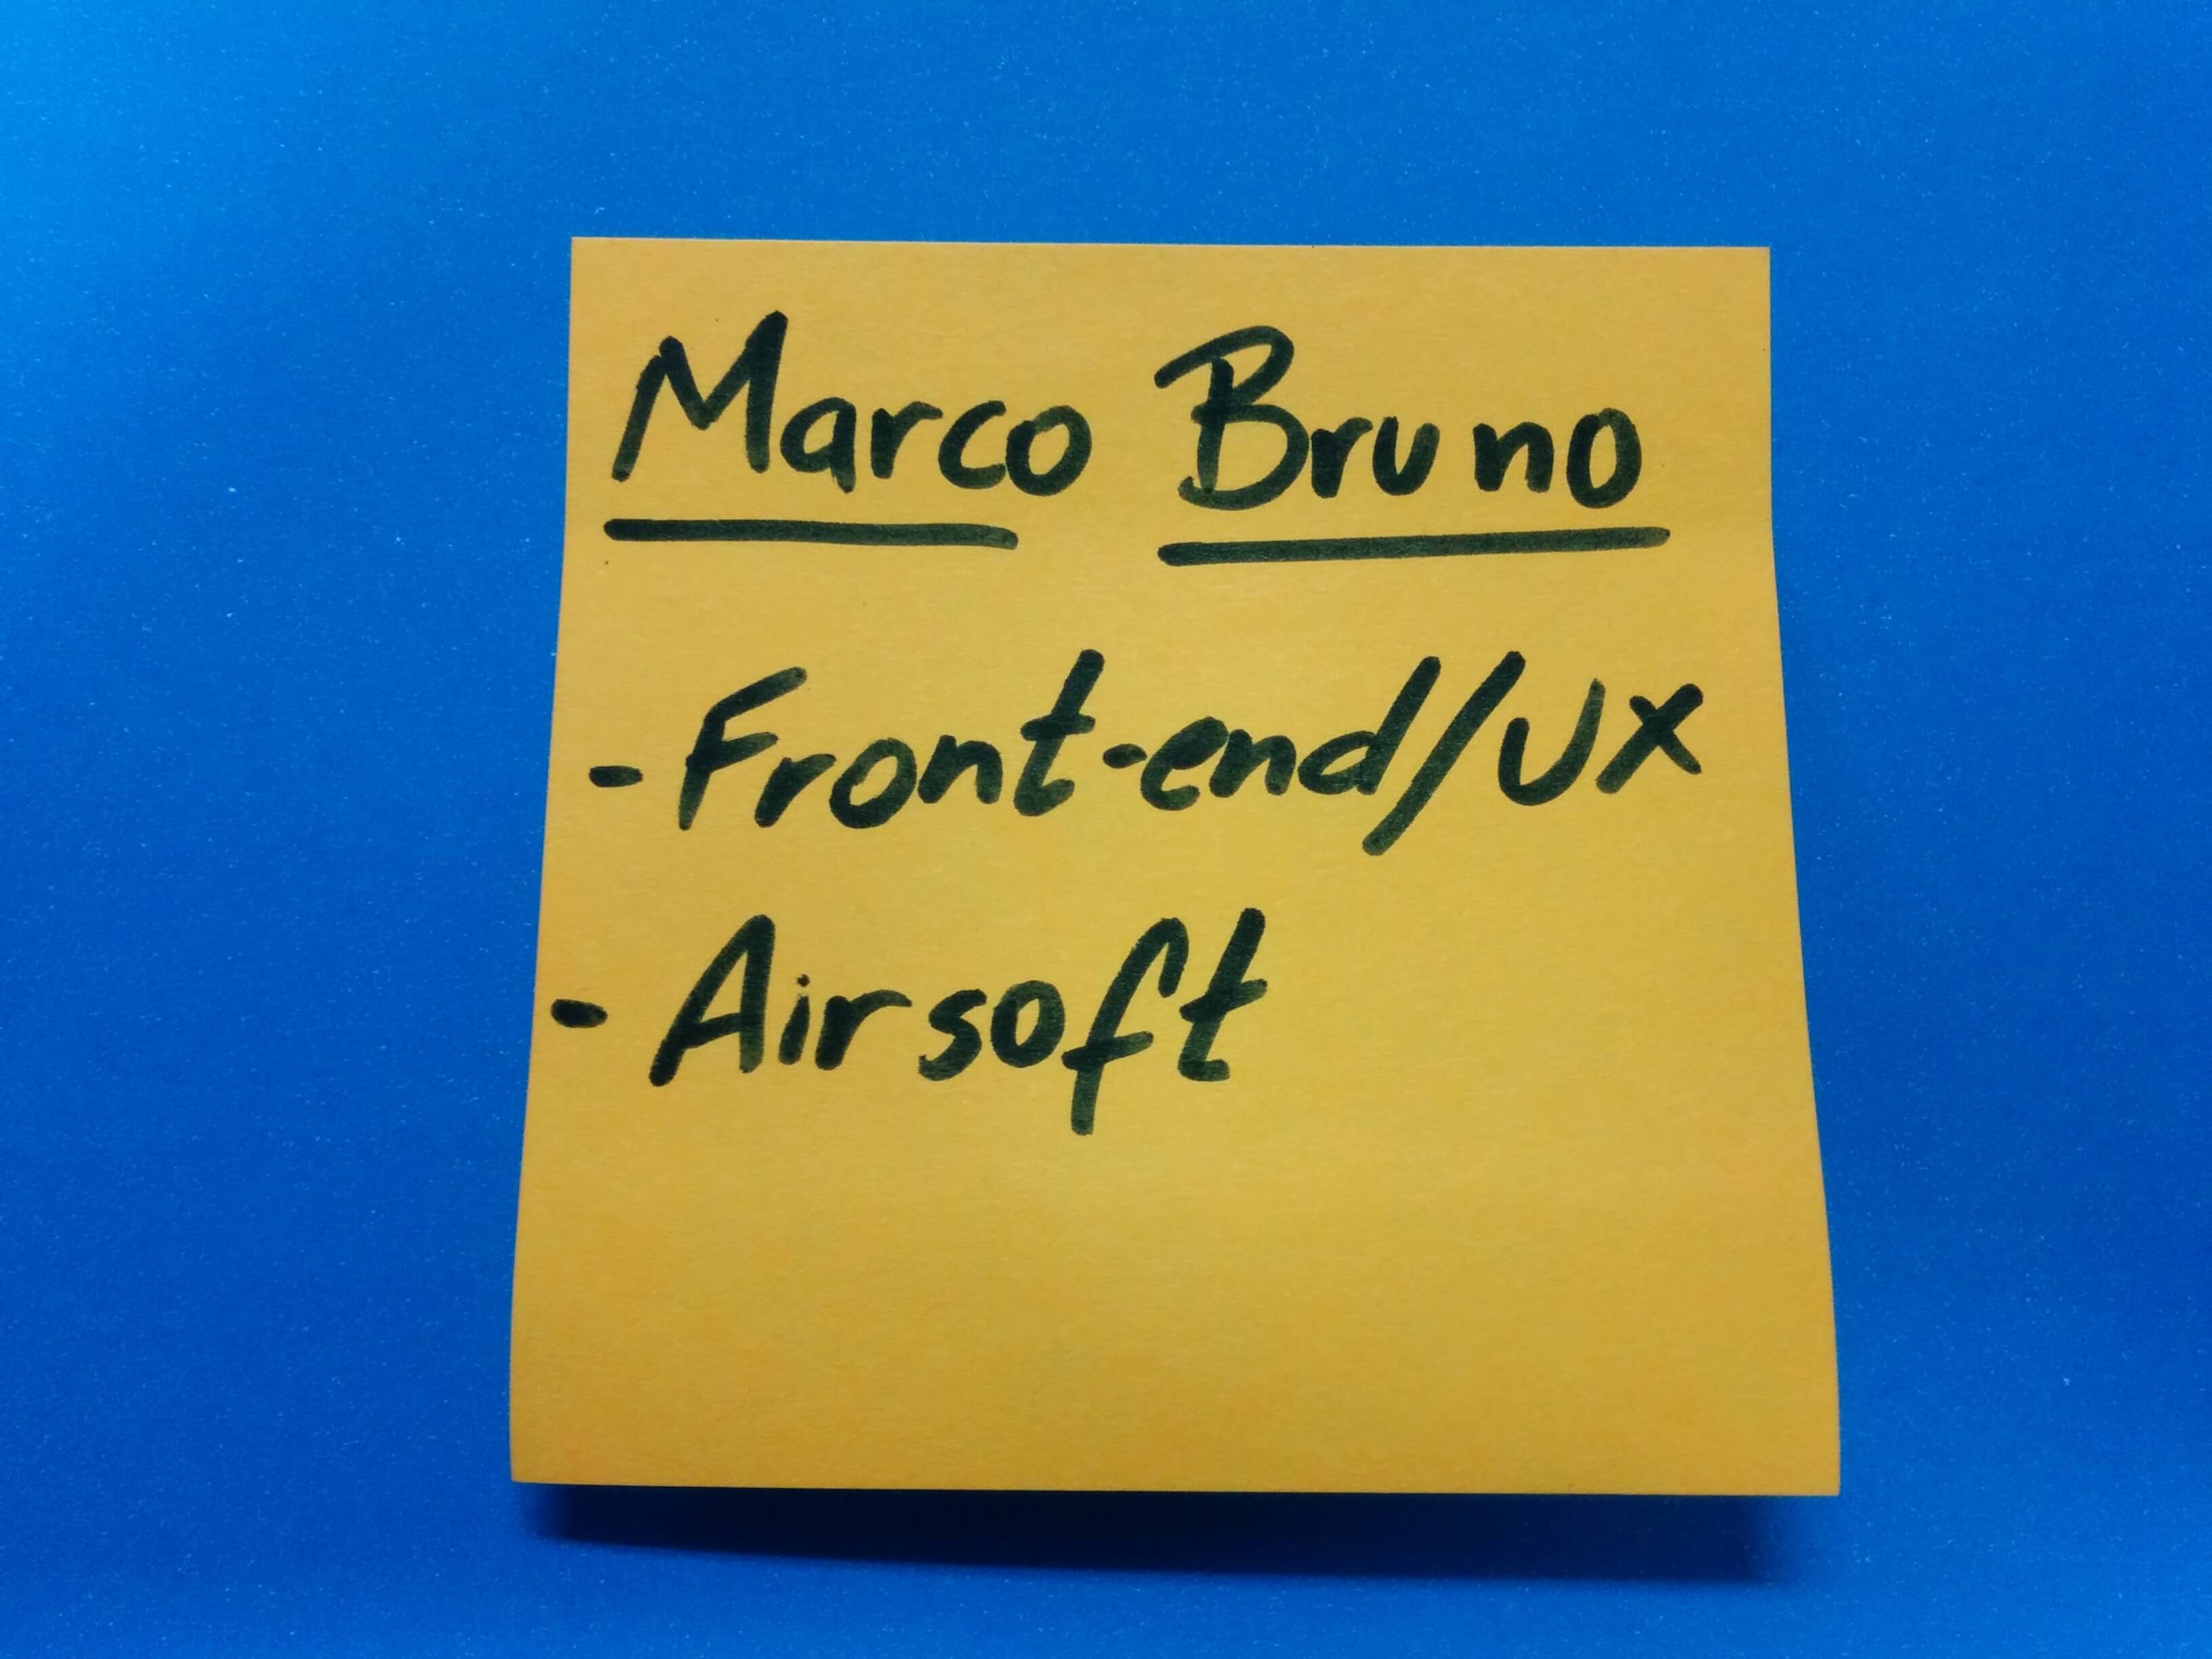 Marco Bruno
- Front-end/UX
- Airsoft